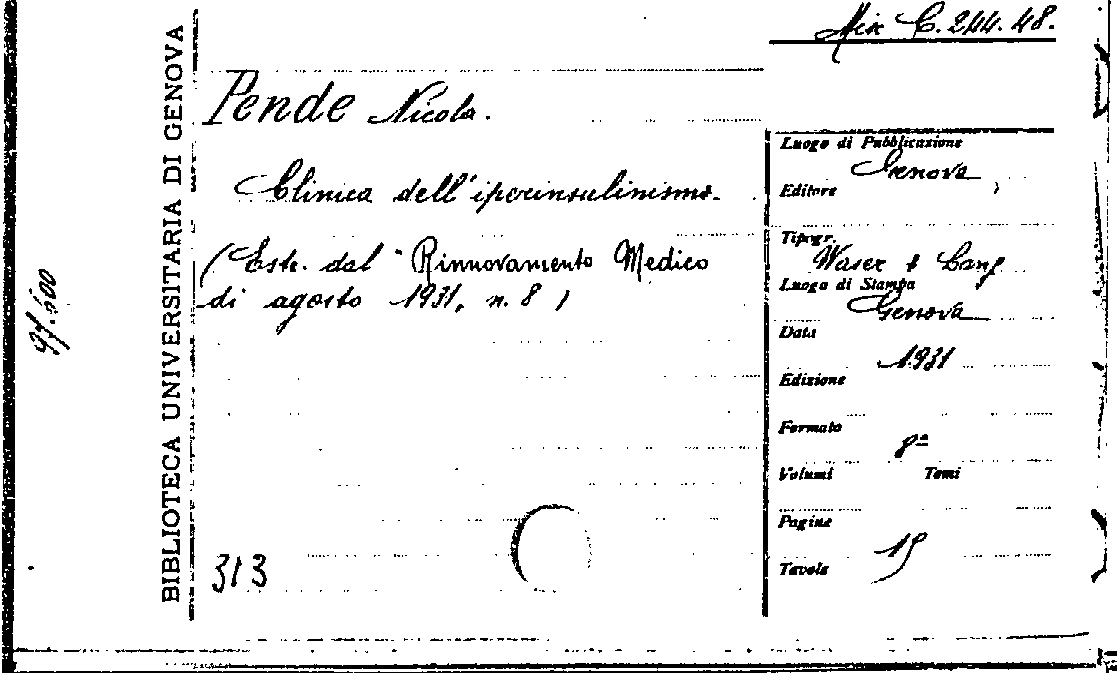 Mis C. 244. 48.
BIBLIOTECA UNIVERSITARIA DI GENOVA
Pende Nicola.
Clinica dell'iperinsulinismo.
(Estr. dal "Rinnovamento Medico
di agosto 1931, n. 8)
313
Luogo di Pubblicazione
Genova
Editore
Tipogr.
Waser &
Luogo di Stampa
Genova
Data
1931
Edizione
Formato
8º
Volumi Tomi
Pagine
15
Tavole